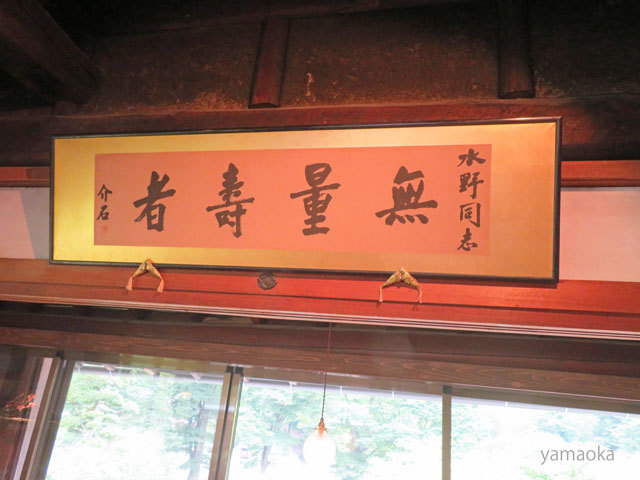 水野同志
無量壽者
介石
yamaoka